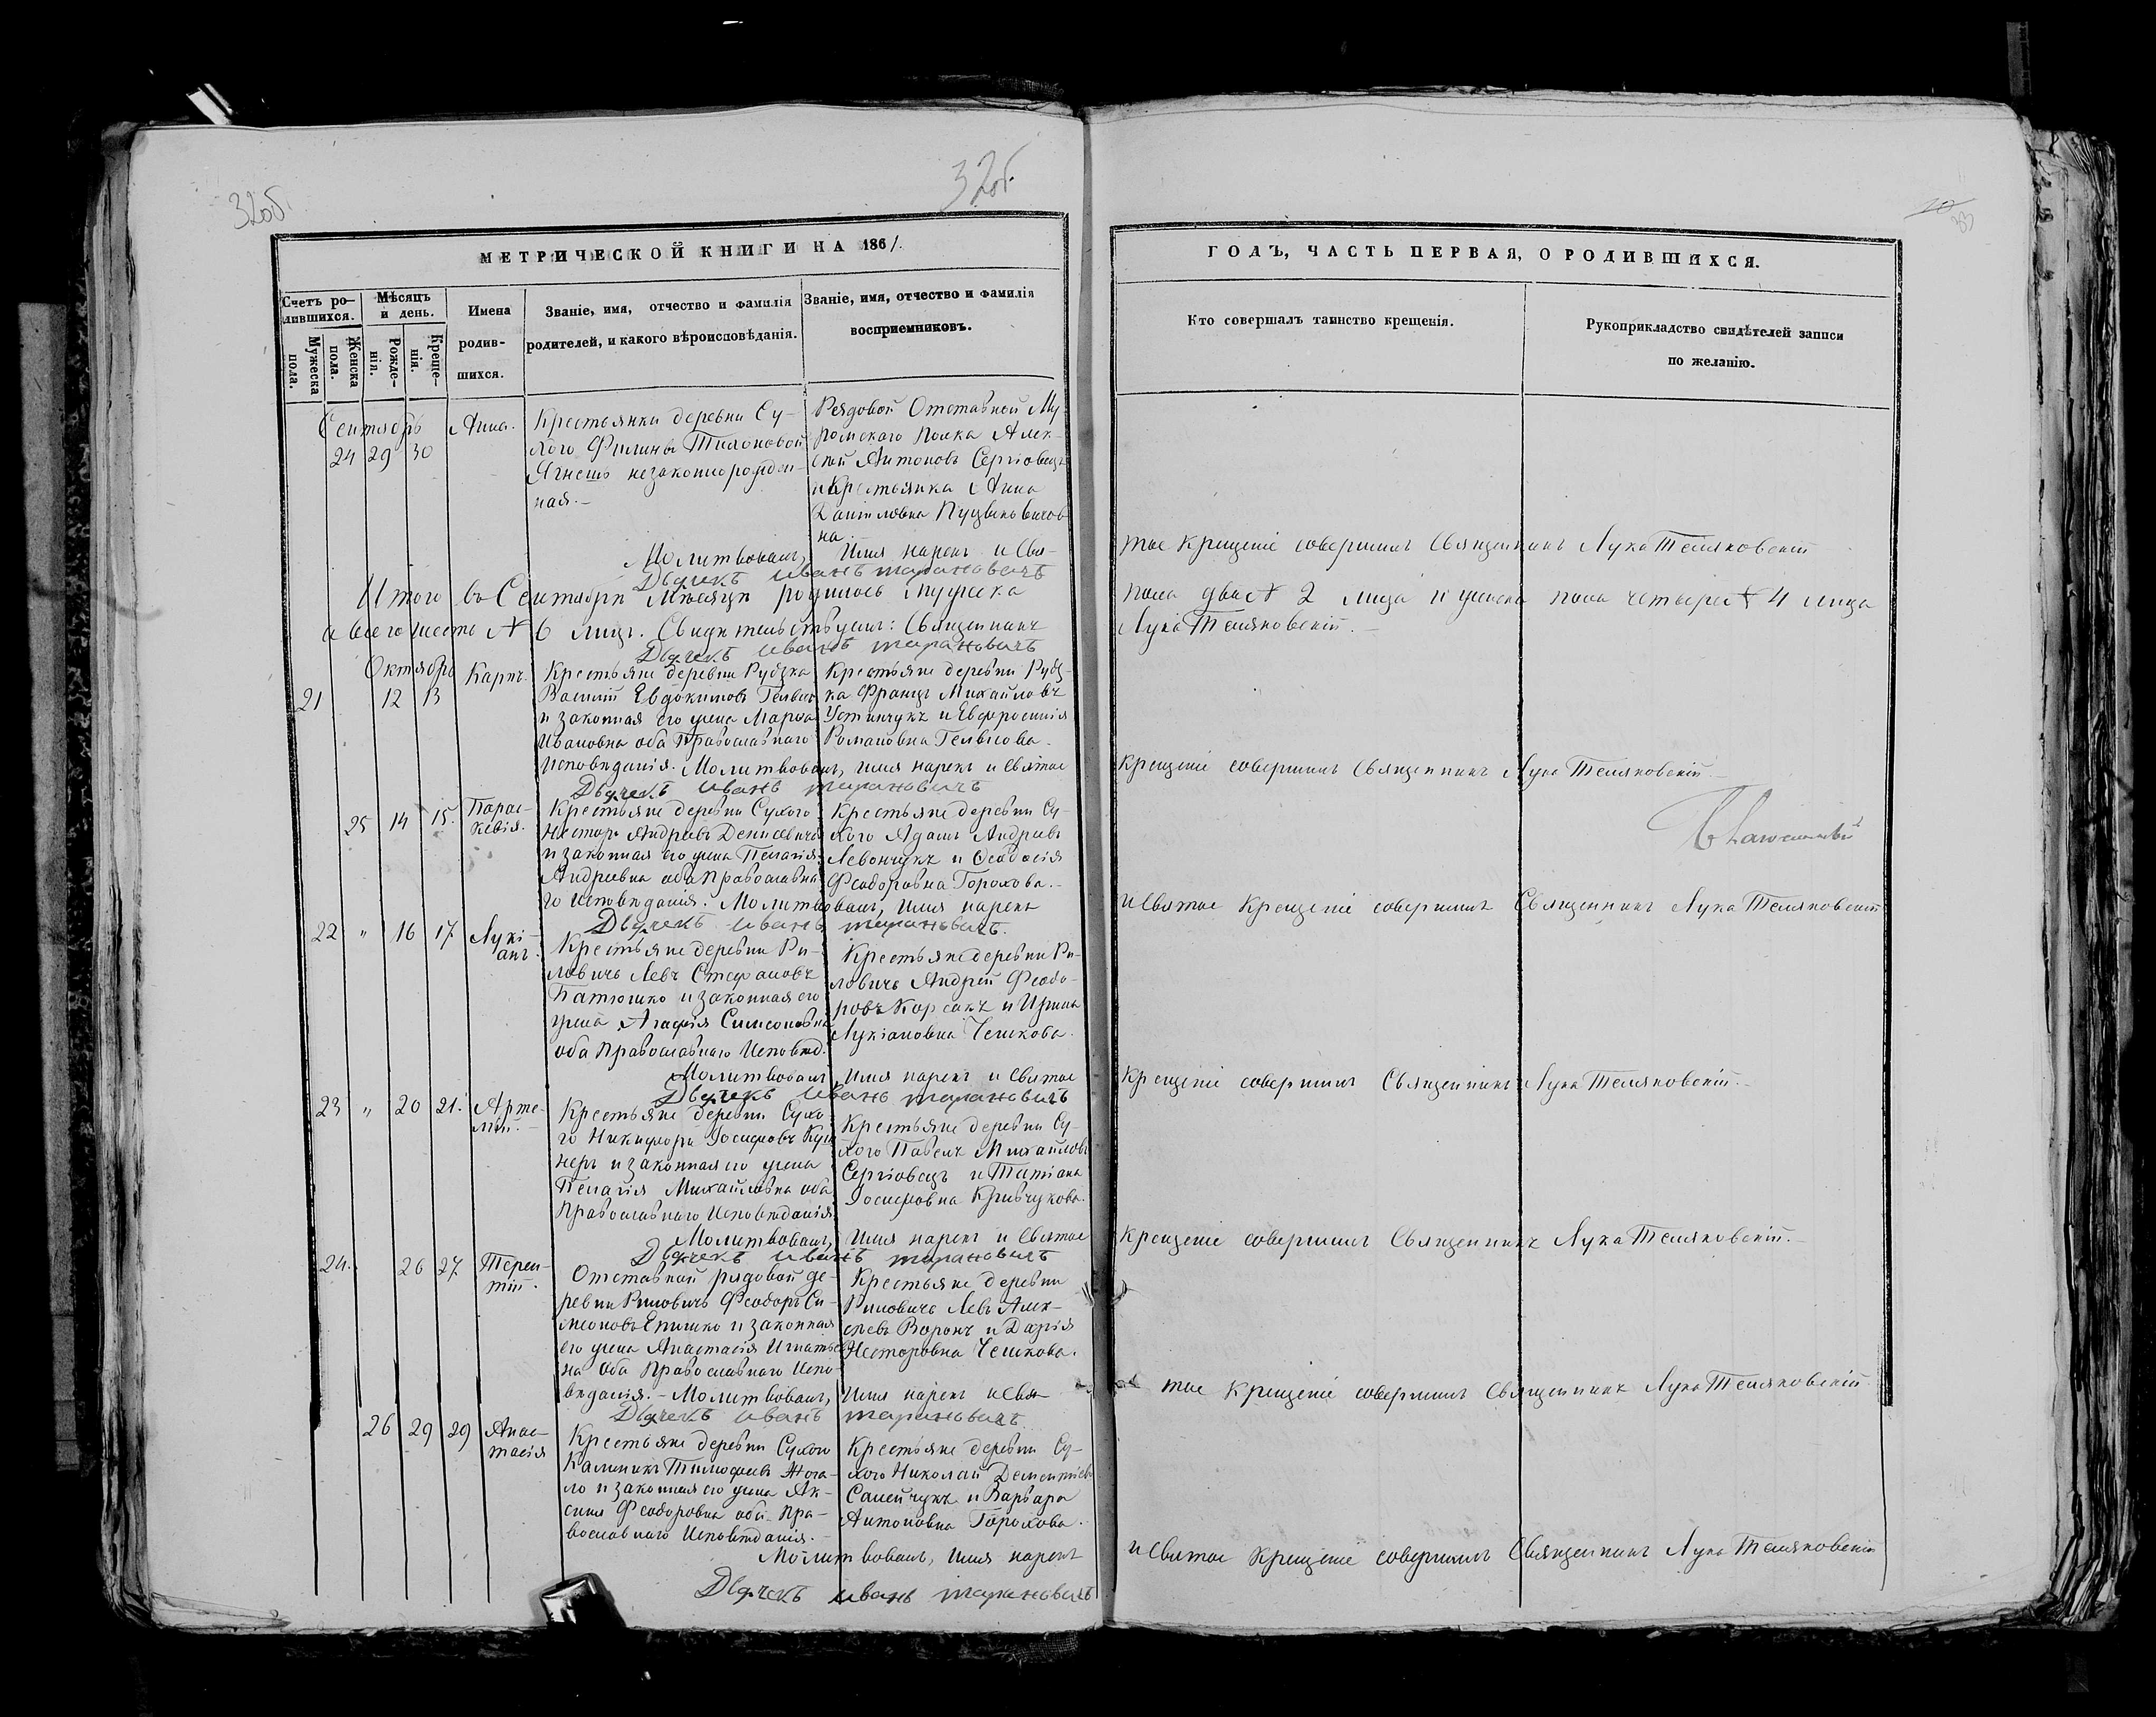 32об.
32об.
10
33
МЕТРИЧЕСКОЙ КНИГИ НА 1861.
ГОДЪ, ЧАСТЬ ПЕРВАЯ, О РОДИВШИХСЯ.
Счетъ ро-
дившихся.
Мужеска пола.
Женска пола.
Мѣсяцъ
и день.
Рожде-
нія.
Креще-
нія.
Имена
родив-
шихся.
Званіе, имя, отчество и фамилія
родителей, и какого вѣроисповѣданія.
Званіе, имя, отчество и фамилія
воспріемниковъ.
Кто совершалъ таинство крещенія.
Рукоприкладство свидѣтелей записи
по желанію.
Сентябрь
24 29 30
Анна.
Крестьянки деревни Су-
хого Филины Тихоновой
Ягнешь незаконнорожден-
ная.-
Рядовой Отставной Му-
ромскаго полка Алек-
сѣй Антоновъ Сергіовецъ
и Крестьянка Анна
на.
Молитвовалъ, Имя нарекъ и Свя-
тое Крещеніе совершилъ Священникъ Лука Теляковскій
Дьячекъ иванъ тарановичъ
Итого въ Сентябрѣ Мѣсяцѣ родилось Мужеска
пола два № 2 лица и женска пола четыре № 4 лица
а всего шесть № 6 лицъ. Свидѣтельствуютъ: Священникъ
Лука Теляковскій.-
Дьячекъ иванъ тарановичъ
Октябрь
21 12 13
Карпъ.
Крестьяне деревни Рудзка
Василій Евдокимовъ Гельвесъ
и законная его жена Марѳа
Ивановна оба Православнаго
Исповѣданія. Молитвовалъ, имя нарекъ и Святое
Крестьяне деревни Рудз-
ка Францъ Михайловъ
Устинчукъ и Евфросинія
Романовна Гельвесова.
Крещеніе совершилъ Священникъ Лука Теляковскій.-
Дьячекъ иванъ тарановичъ
25 14 15.
Парас-
кевія.
Крестьяне деревни Сухого
Несторъ Андреевъ Денисевичъ
и законная его жена Пелагія
Андреевна оба Православна-
го Исповѣданія. Молитвовалъ, имя нарекъ
Крестьяне деревни Су-
хого Адамъ Андреевъ
Левончукъ и Ѳеодосія
Феодоровна Горохова.-
и Святое Крещеніе совершилъ Священникъ Лука Теляковскій
Дьячекъ иванъ тарановичъ.
22 " 16 17.
Лукі-
анъ.
Крестьяне деревни Ри-
ловичъ Левъ Стефановъ
Патюшко и законная его
жена Агафія Симеоновна
оба Православнаго Исповѣд.
Крестьяне деревни Ри-
ловичъ Андрей Феодо-
ровъ Корсакъ и Ирина
Лукіановна Чешкова.
Молитвовалъ, Имя нарекъ и Святое
Крещеніе совершилъ Священникъ Лука Теляковскій.-
Дьячекъ иванъ тарановичъ
23 " 20 21.
Арте-
мій.-
Крестьяне деревни Сухо-
го Никифоръ Іосифовъ Куш-
неръ и законная его жена
Пелагія Михайловна оба
Православнаго Исповѣданія
Крестьяне деревни Су-
хого Павелъ Михайловъ
Сергіовецъ и Татіана
Іосифовна Кривчукова.
Молитвовалъ, Имя нарекъ и Святое
Крещеніе совершилъ Священникъ Лука Теляковскій.-
Дьячекъ иванъ тарановичъ
24. 26 27.
Терен-
тій.
Отставной рядовой де-
ревни Риловичъ Феодоръ Си-
меоновъ Епишко и законная
его жена Анастасія Игнатьев-
на оба Православнаго Испо-
вѣданія.- Молитвовалъ, Имя нарекъ и Свя-
Крестьяне деревни
Риловичъ Левъ Алек-
сѣевъ Воронъ и Дарія
Несторовна Чешкова.
тое Крещеніе совершилъ Священникъ Лука Теляковскій
Дьячекъ иванъ тарановичъ.
26 29 29
Анас-
тасія
Крестьяне деревни Сухого
Калиникъ Тимофеевъ Жога-
ло и законная его жена Ак-
синія Феодоровна оба Пра-
вославнаго Исповѣданія.-
Крестьяне деревни Су-
хого Николай Дементіевъ
Самейчукъ и Варвара
Антоновна Горохова.
Молитвовалъ, имя нарекъ
и Святое Крещеніе совершилъ Священникъ Лука Теляковскій
Дьячекъ иванъ тарановичъ